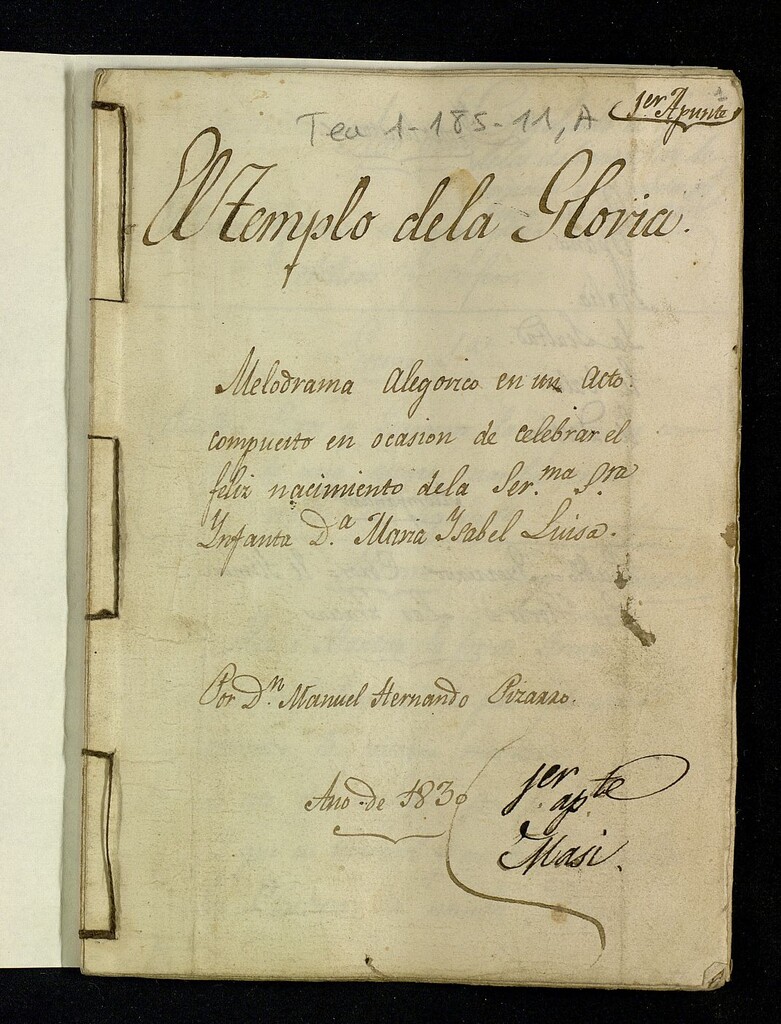 1er Apunte
Tea 1-185-11, A
El Templo dela Gloria.
Melodrama Alegorico en un Acto
compuesto en ocasion de celebrar el
feliz nacimiento dela Ser.ma S.ra
Ynfanta D.a Maria Ysabel Luisa.
Por D.n Manuel Hernando Pizarro.
Ano de 1830
1er apte
Masi.